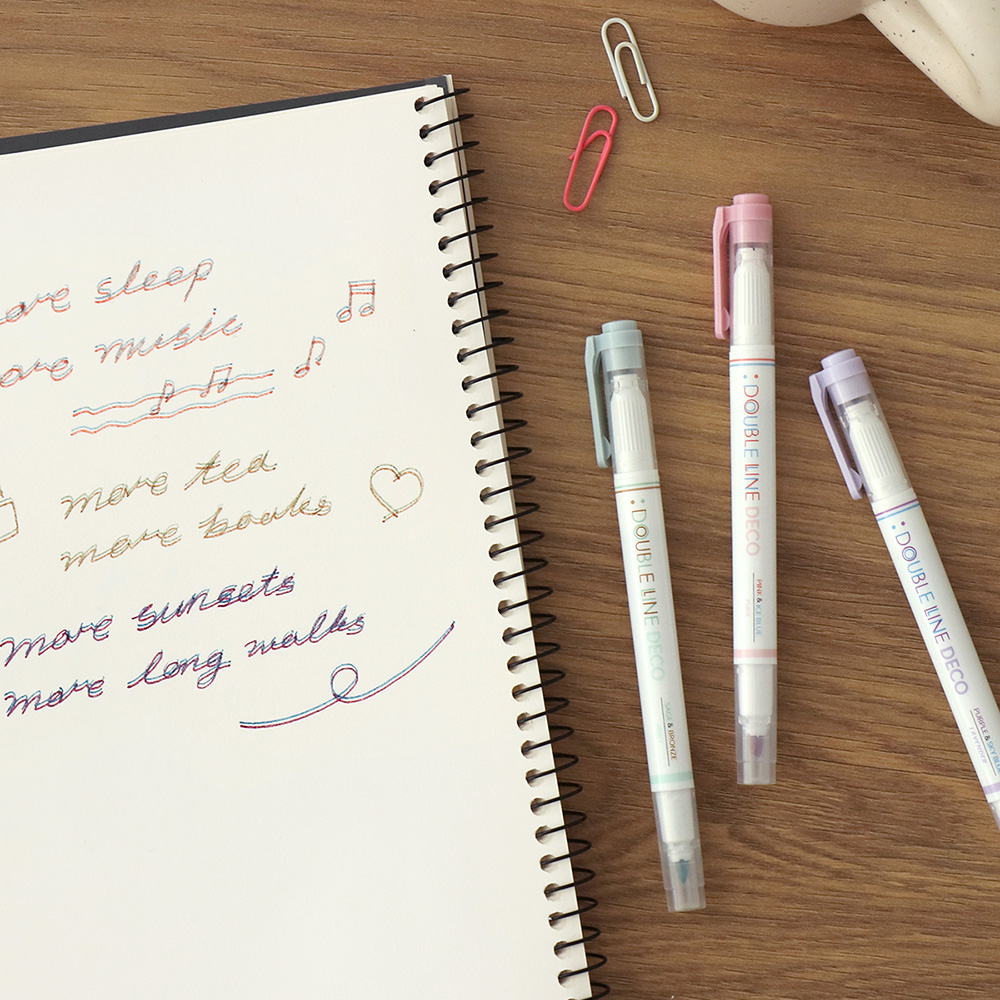 more sleep
more music
more tea
more books
more sunsets
more long walks
DOUBLE LINE DECO
SAGE & BRONZE
DOUBLE LINE DECO
PINK & ICE BLUE
DOUBLE LINE DECO
PURPLE & SKY BLUE
LAVENDER